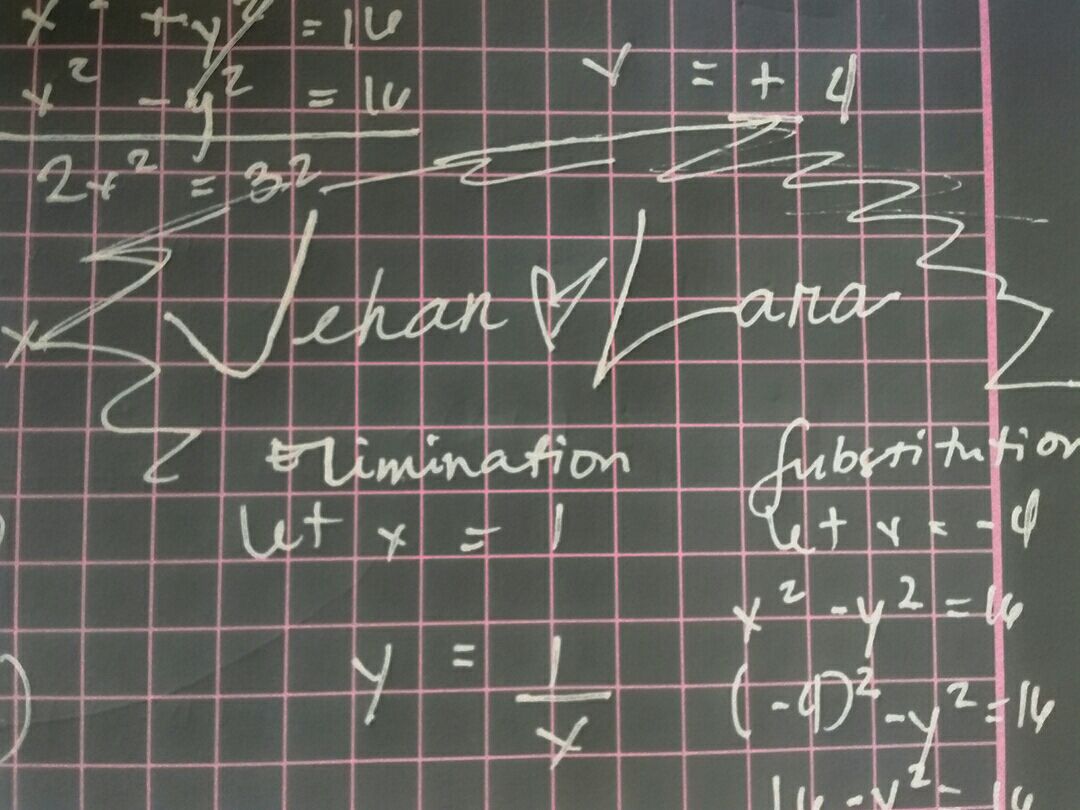 x² + y² = 16
x² - y² = 16
2x² = 32
x = ± 4
Jehan ♡ Lara
Elimination
let x = 1
y = 1/x
Substitution
let x = -4
x² - y² = 16
(-4)² - y² = 16
16 - y² = 16